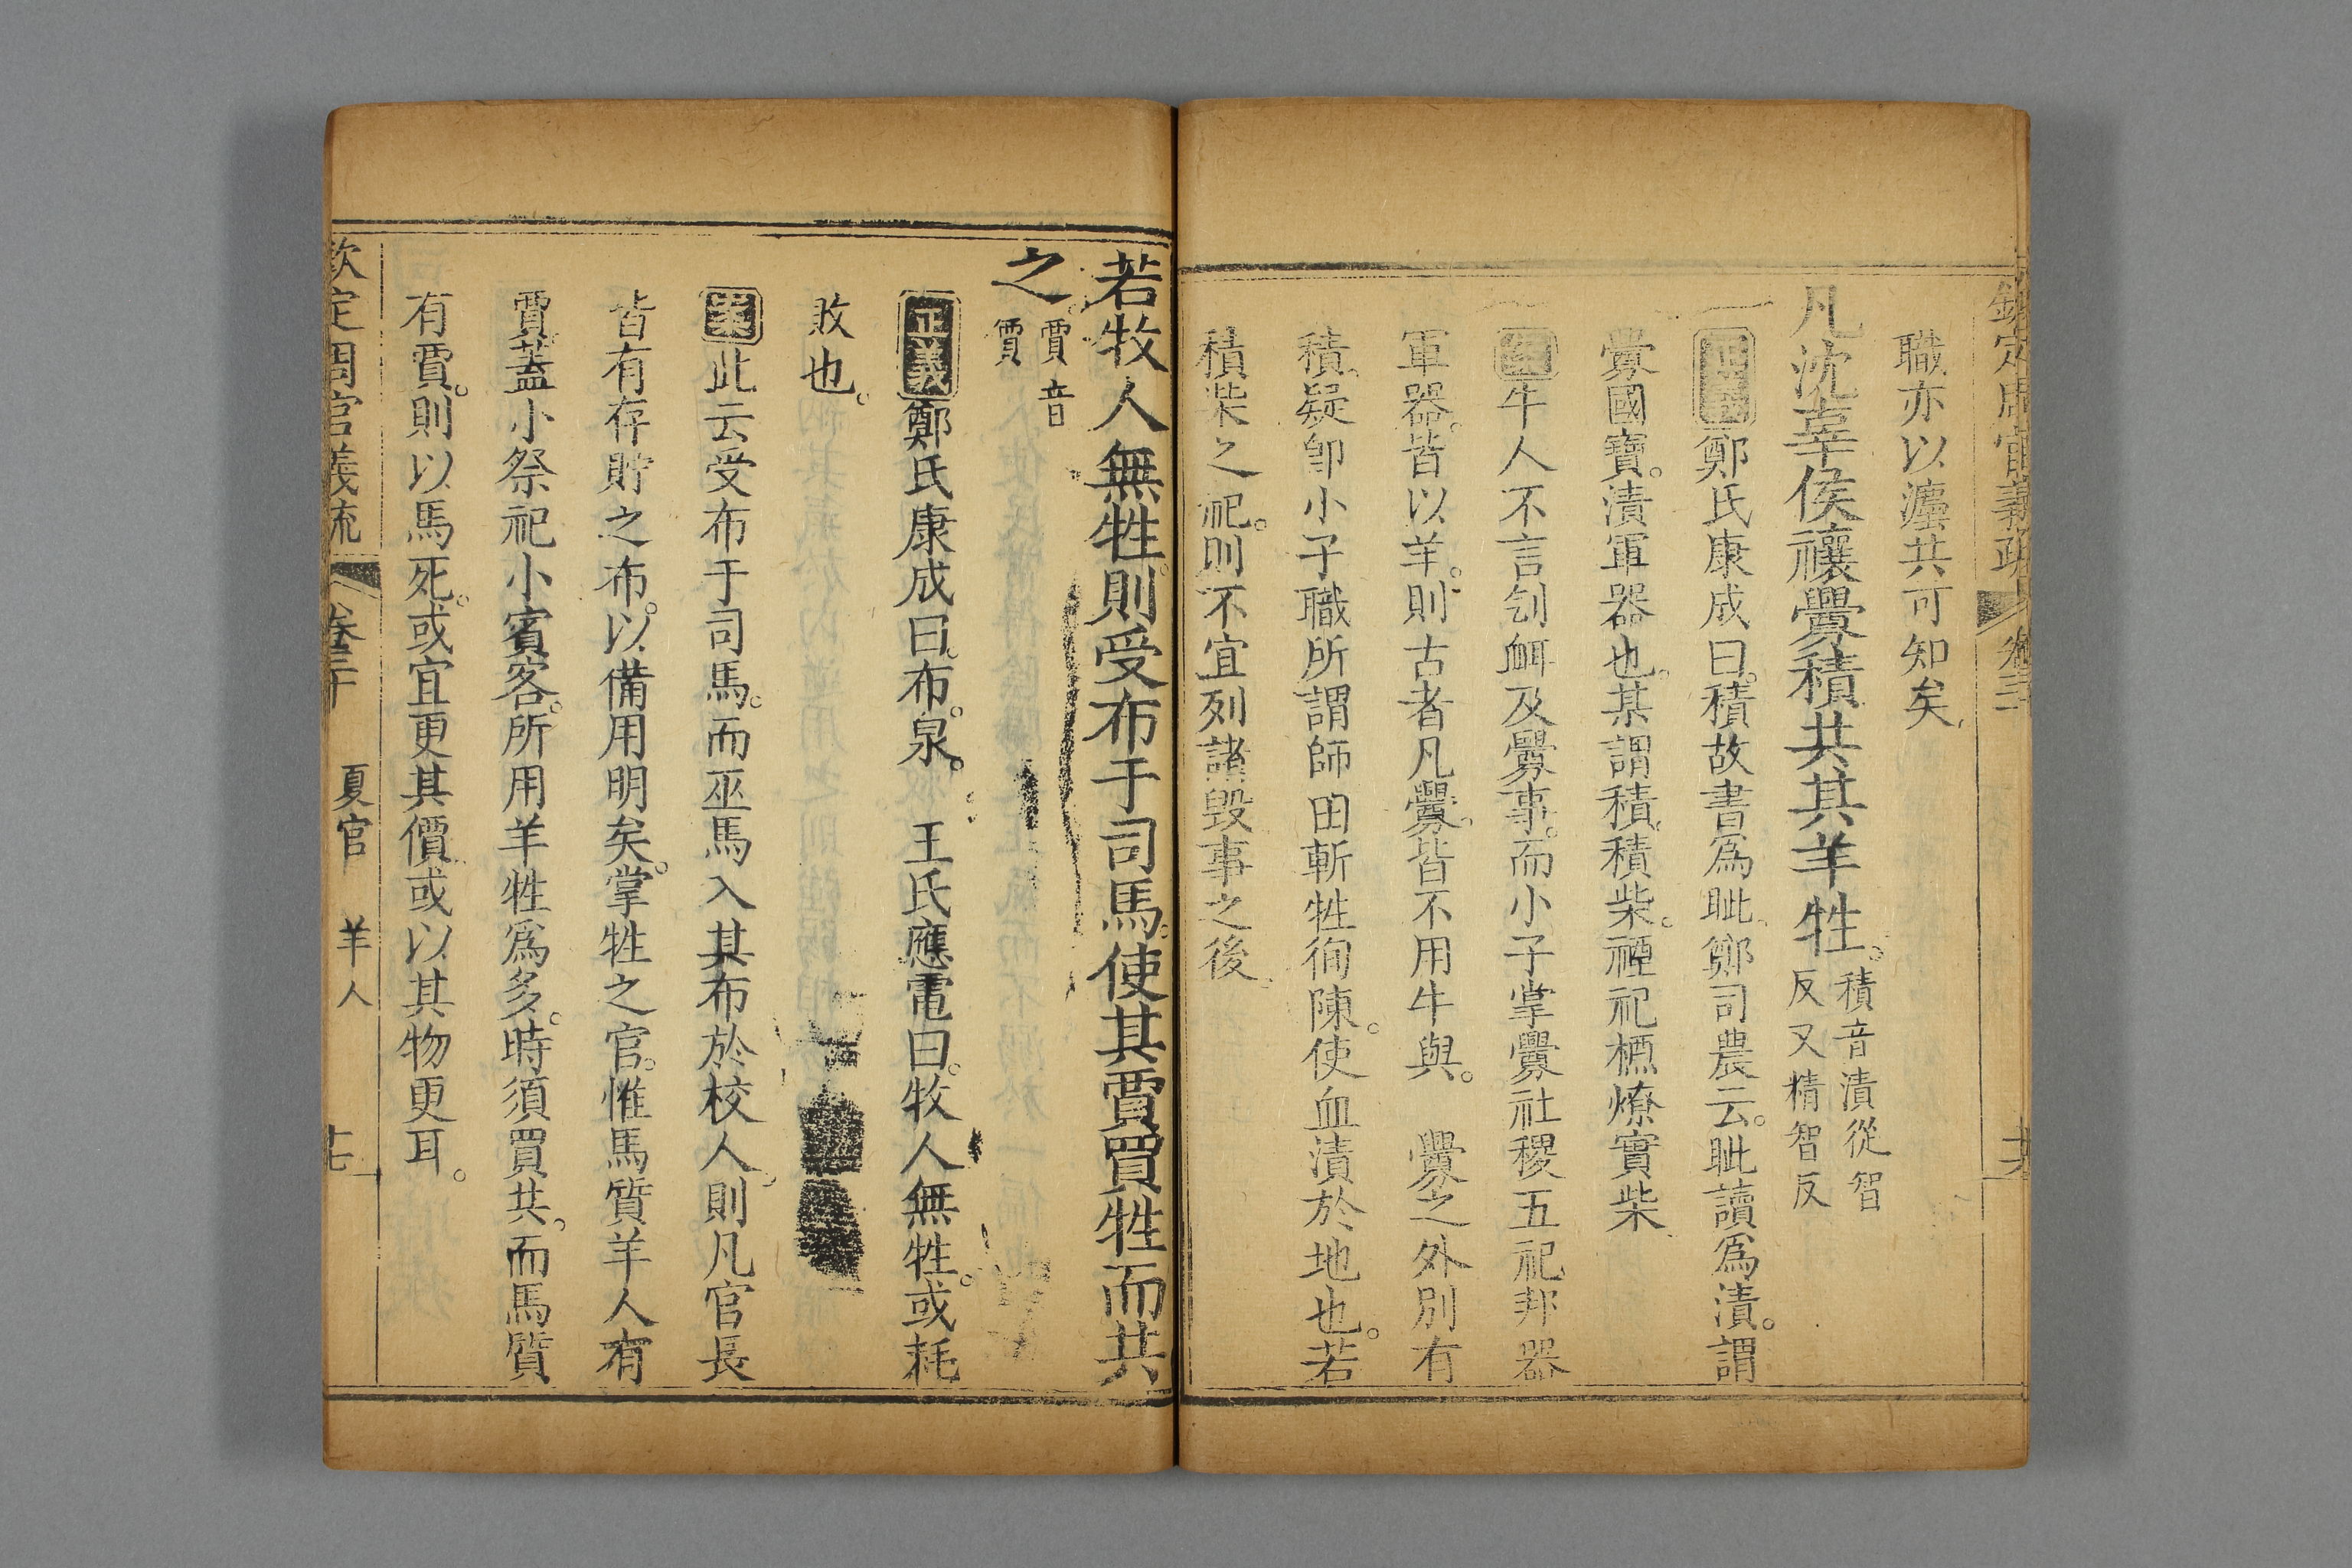 欽定周官義疏 卷三十
職亦以灋共可知矣
凡沈辜侯禳釁積共其羊牲。積音漬從智反又精智反
正義鄭氏康成曰。積故書爲眦、鄭司農云。眦讀爲漬。謂
釁國寶。漬軍器也。某謂積、積柴。禋祀槱燎實柴
案牛人不言刉衈及釁事。而小子掌釁社稷五祀、邦器
軍器。皆以羊。則古者凡釁。皆不用牛與。 釁之外別有
積、疑卽小子職所謂師田斬牲徇陳。使血漬於地也。若
積柴之祀。則不宜列諸毀事之後、
若牧人無牲。則受布于司馬。使其賈買牲而共
之。賈音價
正義鄭氏康成曰。布。泉。 王氏應電曰。牧人無牲。或耗
敗也。
案此云受布于司馬。而巫馬入其布於校人。則凡官長
皆有存貯之布。以備用明矣。掌牲之官。惟馬質羊人有
賈、蓋小祭祀小賓客。所用羊牲爲多。時須買共。而馬質
有賈。則以馬死。或宜更其價、或以其物更耳。
欽定周官義疏 卷三十 夏官 羊人 十七